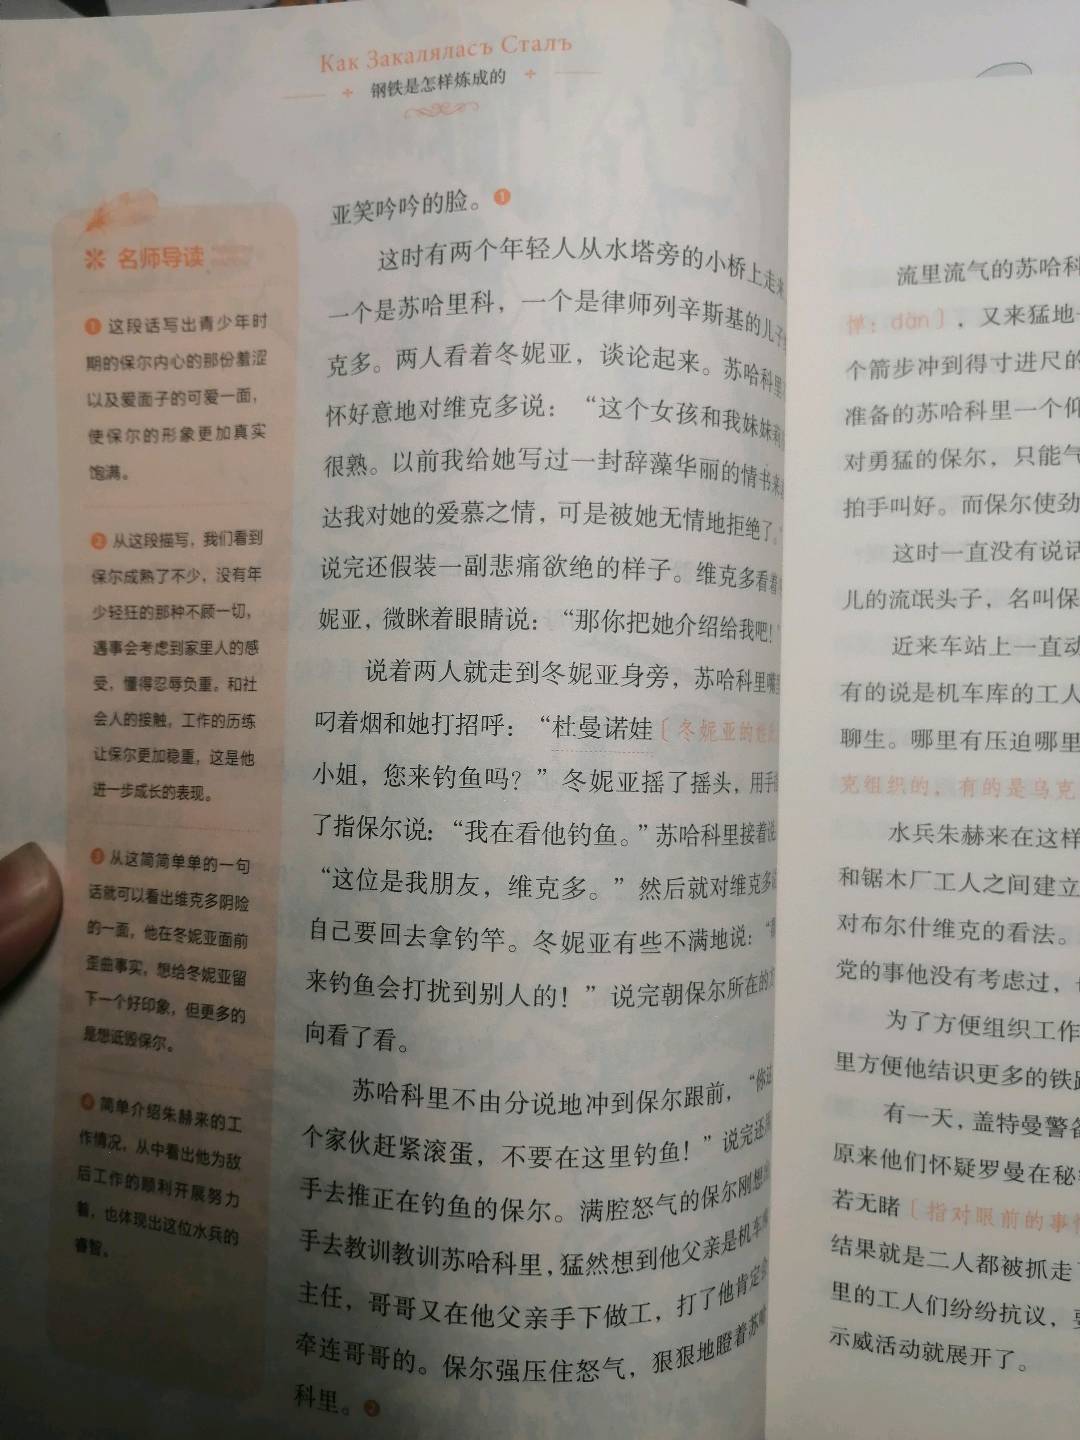 Как Закалялась Сталь
钢铁是怎样炼成的
名师导读
❶ 这段话写出青少年时
期的保尔内心的那份羞涩
以及爱面子的可爱一面,
使保尔的形象更加真实
饱满。
❷ 从这段描写,我们看到
保尔成熟了不少,没有年
少轻狂的那种不顾一切,
遇事会考虑到家里人的感
受,懂得忍辱负重。和社
会人的接触,工作的历练
让保尔更加稳重,这是他
进一步成长的表现。
❸ 从这简简单单的一句
话就可以看出维克多阴险
的一面,他在冬妮亚面前
歪曲事实,想给冬妮亚留
下一个好印象,但更多的
是想诋毁保尔。
❹ 简单介绍朱赫来的工
作情况,从中看出他为敌
后工作的顺利开展努力
着,也体现出这位水兵的
睿智。
亚笑吟吟的脸。❶
这时有两个年轻人从水塔旁的小桥上走来
一个是苏哈里科,一个是律师列辛斯基的儿子
克多。两人看着冬妮亚,谈论起来。苏哈科里
怀好意地对维克多说:“这个女孩和我妹妹
很熟。以前我给她写过一封辞藻华丽的情书来
达我对她的爱慕之情,可是被她无情地拒绝了。”
说完还假装一副悲痛欲绝的样子。维克多看着
妮亚,微眯着眼睛说:“那你把她介绍给我吧!”
说着两人就走到冬妮亚身旁,苏哈科里嘴里
叼着烟和她打招呼:“杜曼诺娃〔冬妮亚的姓
小姐,您来钓鱼吗?”冬妮亚摇了摇头,用手
了指保尔说:“我在看他钓鱼。”苏哈科里接着说
“这位是我朋友,维克多。”然后就对维克多
自己要回去拿钓竿。冬妮亚有些不满地说:“
来钓鱼会打扰到别人的!”说完朝保尔所在的方
向看了看。
苏哈科里不由分说地冲到保尔跟前,“你这
个家伙赶紧滚蛋,不要在这里钓鱼!”说完还
手去推正在钓鱼的保尔。满腔怒气的保尔刚想
手去教训教训苏哈科里,猛然想到他父亲是机车
主任,哥哥又在他父亲手下做工,打了他肯定会
牵连哥哥的。保尔强压住怒气,狠狠地瞪着苏哈
科里。❷
流里流气的苏哈科
惮:dàn〕,又来猛地
个箭步冲到得寸进尺的
准备的苏哈科里一个仰
对勇猛的保尔,只能气
拍手叫好。而保尔使劲
这时一直没有说话
儿的流氓头子,名叫保
近来车站上一直动
有的说是机车库的工人
聊生。哪里有压迫哪里
克组织的,有的是乌克
水兵朱赫来在这样
和锯木厂工人之间建立
对布尔什维克的看法。
党的事他没有考虑过,
为了方便组织工作
里方便他结识更多的铁路
有一天,盖特曼警备
原来他们怀疑罗曼在秘
若无睹〔指对眼前的事情
结果就是二人都被抓走了
里的工人们纷纷抗议,要
示威活动就展开了。